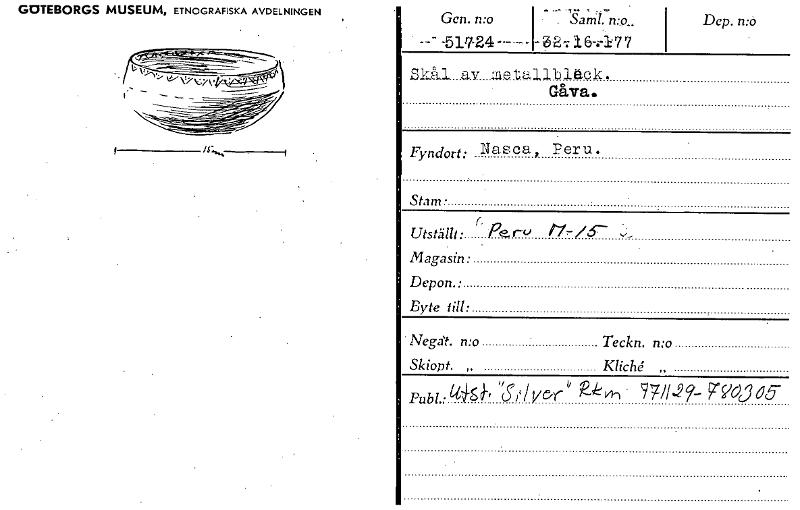 GÖTEBORGS MUSEUM, ETNOGRAFISKA AVDELNINGEN
15
Gen. n:o Saml. n:o Dep. n:o
51724 32.16.177
Skål av metallbleck.
Gåva.
Fyndort: Nasca, Peru.
Stam:
Utställt: Peru M-15
Magasin:
Depon.:
Byte till:
Negat. n:o Teckn. n:o
Skiopt. „ Kliché „
Publ.: Utst. "Silver" Rkm 771129-780305